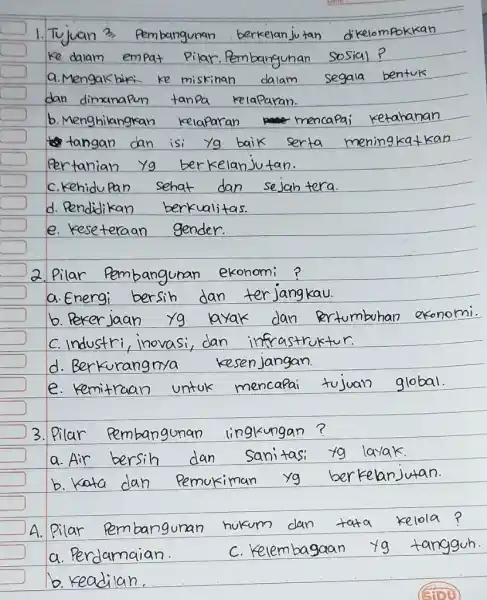 1. Tujuan 2 Pembangunan berkelanjutan dikelompokkan
ke dalam empat Pilar. Pembangunan sosial ?
a. Mengakhiri ke miskinan dalam segala bentuk
dan dimanapun tanpa kelaparan.
b. Menghilangkan kelaparan mencapai ketahanan
tangan dan isi yg baik serta meningkatkan
Pertanian yg berkelanjutan.
c. kehidupan sehat dan sejahtera.
d. Pendidikan berkualitas.
e. keseteraan gender.
2. Pilar Pembangunan ekonomi ?
a. Energi bersih dan terjangkau.
b. Pekerjaan yg layak dan Pertumbuhan ekonomi.
c. industri, inovasi, dan infrastruktur.
d. Berkurangnya kesenjangan.
e. kemitraan untuk mencapai tujuan global.
3. Pilar Pembangunan lingkungan ?
a. Air bersih dan sanitasi yg layak.
b. kota dan Pemukiman yg berkelanjutan.
4. Pilar Pembangunan hukum dan tata kelola ?
a. Perdamaian. c. kelembagaan yg tangguh.
b. keadilan.
SiDU